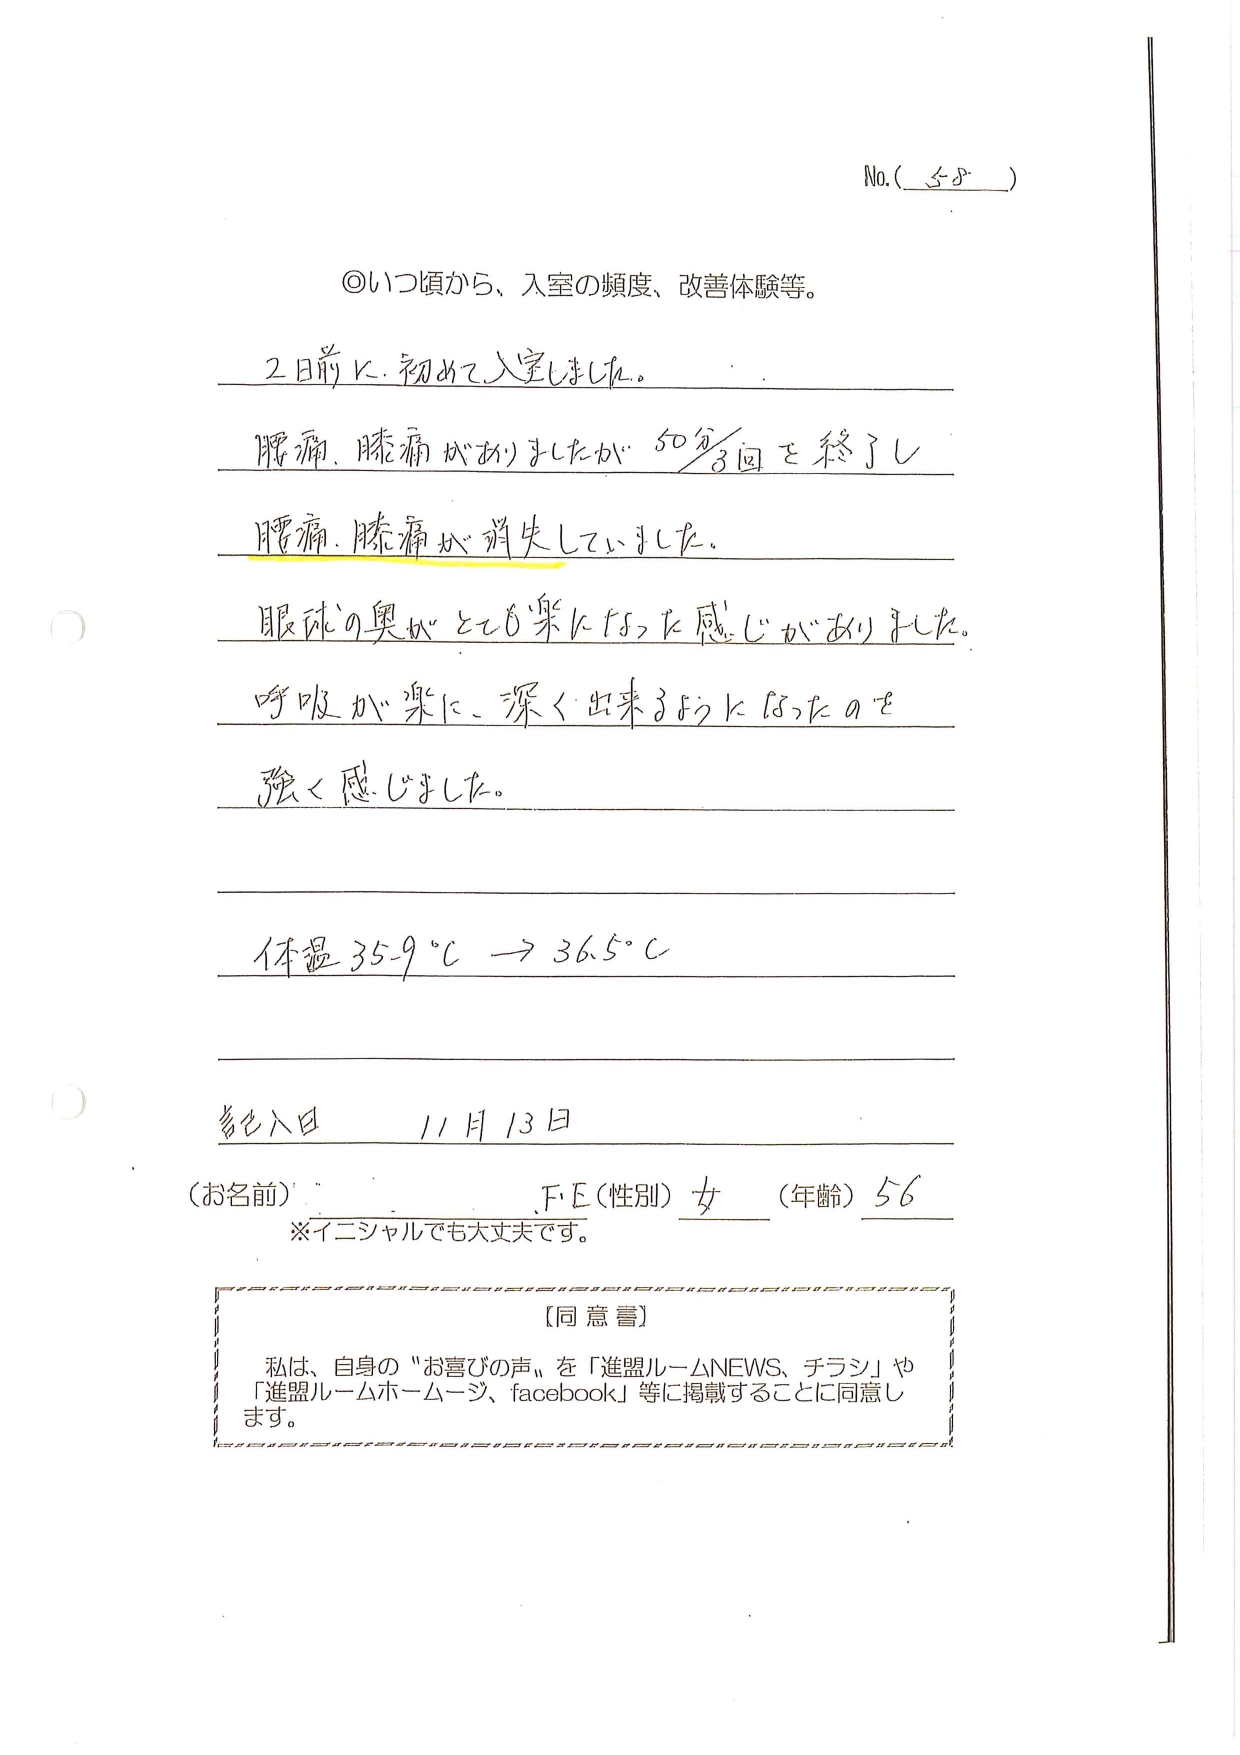 No.( 58 )
◎いつ頃から、入室の頻度、改善体験等。
2日前に.初めて入室しました。
腰痛、膝痛がありましたが 50分/3回を終了し
腰痛、膝痛が消失していました。
眼球の奥がとても楽になった感じがありました。
呼吸が楽に、深く出来るようになったのを
強く感じました。
体温 35.9℃ → 36.5℃
記入日 11月13日
（お名前） F・E（性別） 女 （年齢） 56
※イニシャルでも大丈夫です。
【同意書】
私は、自身の〝お喜びの声〟を「進盟ルームNEWS、チラシ」や
「進盟ルームホームージ、facebook」等に掲載することに同意し
ます。